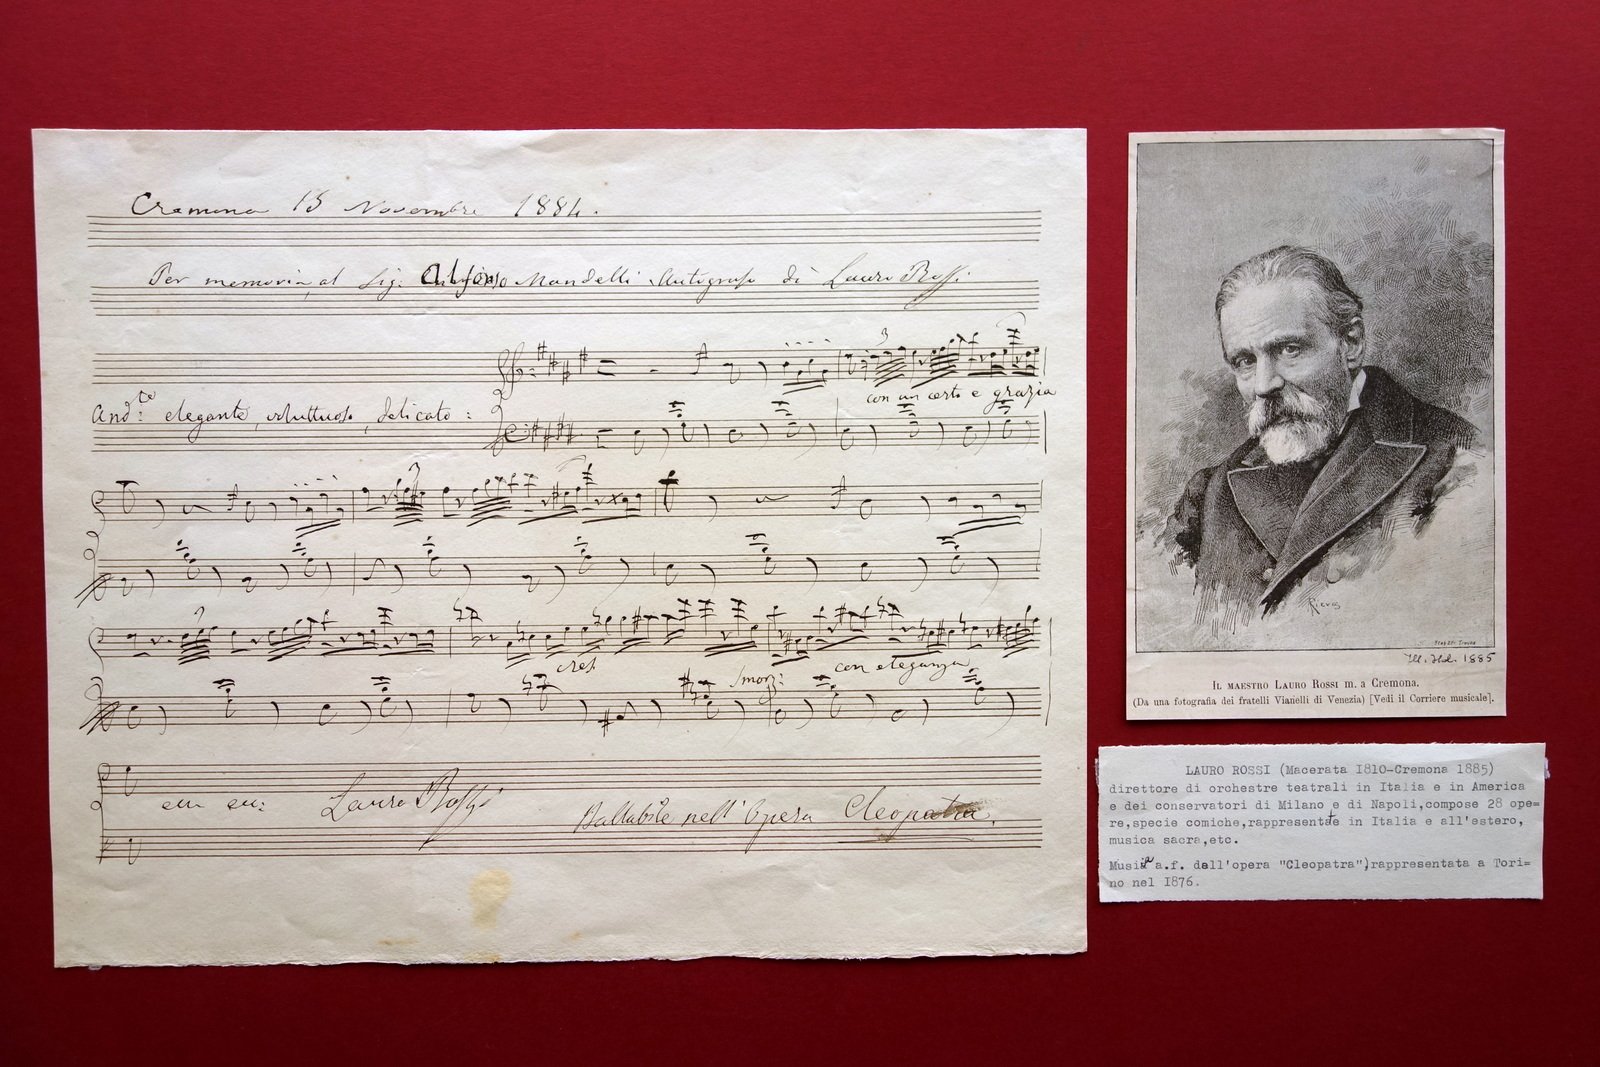 Cremona 15 Novembre 1884.
Per memoria al Sig: Alfonso Mandelli Autografo di Lauro Rossi
3
con un certo e grazia
And:te elegante, voluttuoso, delicato:
3
3
cres
smorz:
con eleganza
Lauro Rossi
Ballabile nell'Opera Cleopatra.
Ill. Ital. 1885
IL MAESTRO LAURO ROSSI m. a Cremona.
(Da una fotografia dei fratelli Vianelli di Venezia) [Vedi il Corriere musicale].
LAURO ROSSI (Macerata I8I0-Cremona 1885)
direttore di orchestre teatrali in Italia e in America
e dei conservatori di Milano e di Napoli,compose 28 ope=
re,specie comiche,rappresentate in Italia e all'estero,
musica sacra,etc.
Musica a.f. dell'opera "Cleopatra",rappresentata a Tori=
no nel I876.